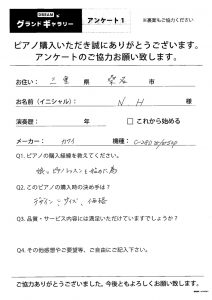 グランドギャラリー アンケート1 ※裏面もご協力ください
ピアノ購入いただき誠にありがとうございます。
アンケートのご協力お願い致します。
お住い: 三重 県 市
お名前(イニシャル): N . H 様
演奏歴: 年 □ これから始める
メーカー: カワイ 機種:
Q1.ピアノの購入経緯を教えてください。
娘がピアノレッスンを始めた為
Q2.このピアノの購入時の決め手は?
デザイン・サイズ、価格
Q3.品質・サービス内容には満足いただけていますでしょうか?
Q4.その他感想やご要望等、ご自由にご記入下さい。
ご協力ありがとうございました。今後ともよろしくお願い致します。